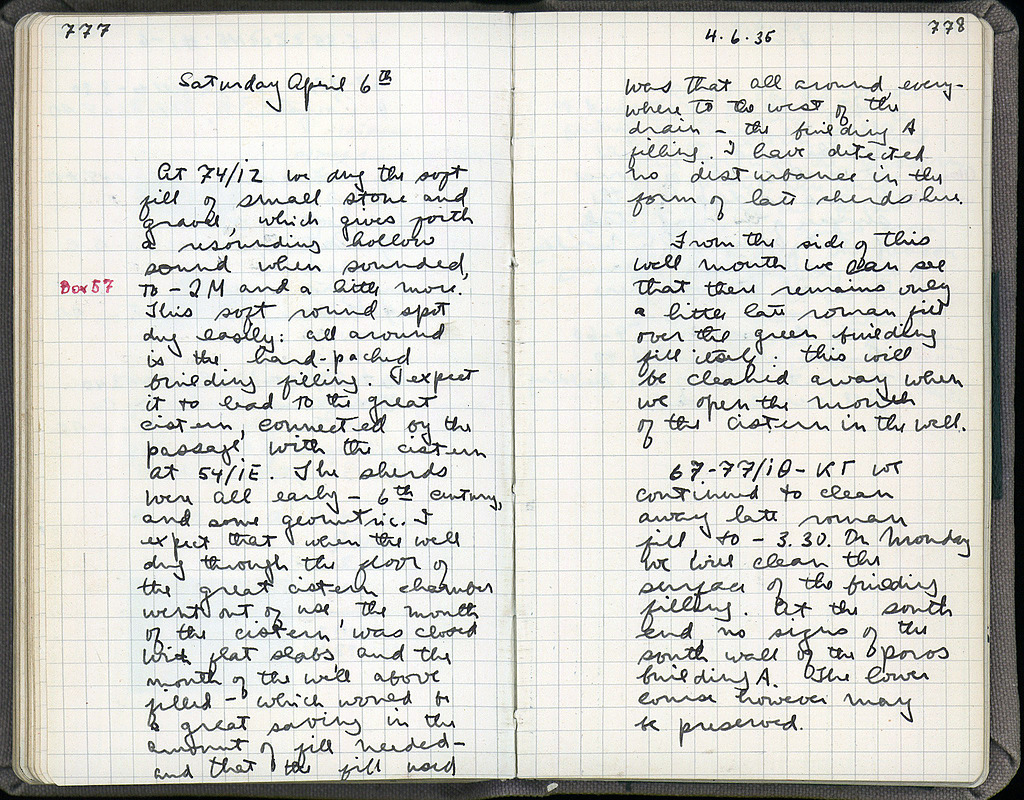 777
Saturday April 6th
At 74/ΙΖ we dug the soft
fill of small stone and
gravel, which gives forth
a resounding hollow
sound when sounded,
Box 57
to -2M and a little more.
This soft round spot
dug easily: all around
is the hard-packed
building filling. I expect
it to lead to the great
cistern, connected by the
passage with the cistern
at 54/ΙΕ. The sherds
were all early - 6th century,
and some geometric. I
expect that when the well
dug through the floor of
the great cistern chamber
went out of use the mouth
of the cistern was closed
with flat slabs, and the
mouth of the well above
filled - which would be
a great saving in the
amount of fill needed -
and that the fill used
4.6.35
778
was that all around every-
where to the west of the
drain - the building A
filling. I have detected
no disturbance in the
form of late sherds here.
From the side of this
well mouth we can see
that there remains only
a little late roman fill
over the green building
fill itself. This will
be cleaned away when
we open the mouth
of the cistern in the well.
67-77/ΙΘ-ΚΓ we
continued to clean
away late roman
fill to -3.30. On Monday
we will clean the
surface of the building
filling. At the south
end no signs of the
south wall of the poros
building A. The lower
course however may
be preserved.